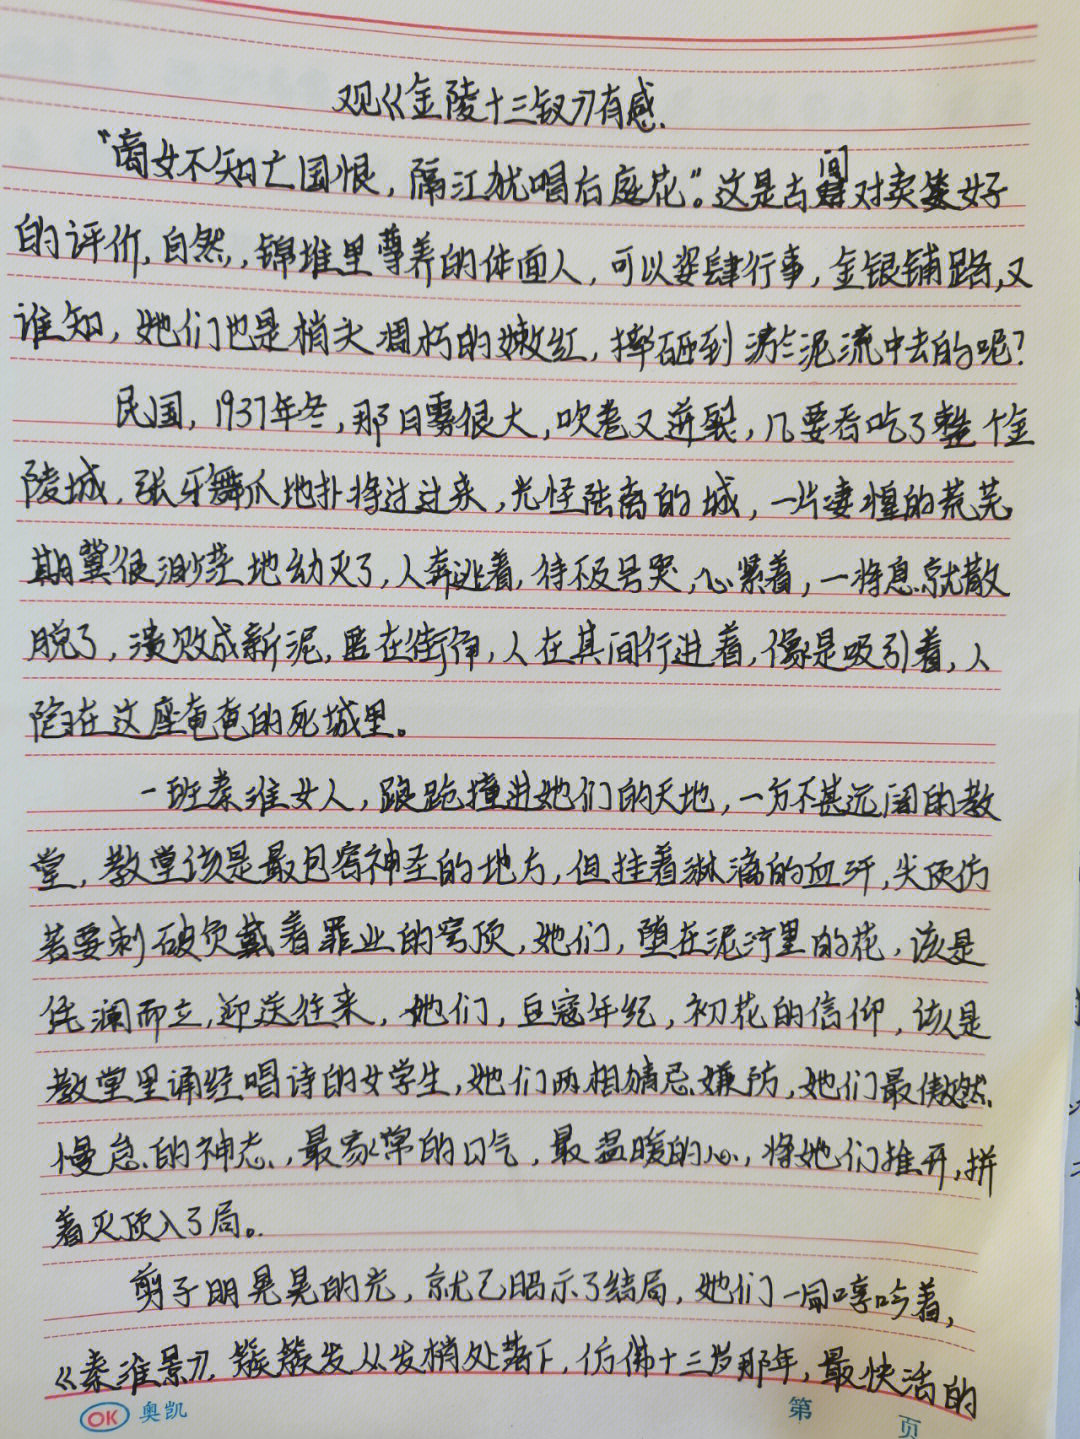 观《金陵十三钗》有感.
"商女不知亡国恨，隔江犹唱后庭花"。这是古间对卖姿好
的评价，自然，锦堆里尊养的体面人，可以姿肆行事，金银铺路，又
谁知，她们也是梢头凋朽的嫩红，摔砸到 泥流中去的呢？
民国，1937年冬，那日雾很大，吹卷又迸裂，几要吞吃了整个金
陵城，张牙舞爪地扑将过过来，光怪陆离的城，一片凄惶的荒芜
期冀便 地幻灭了，人奔逃着，待不及号哭，心紧着，一将息就散
脱了，溃败成新泥，匿在街 ，人在其间行进着，像是吸引着，人
陷在这座奄奄的死城里。
一班秦淮女人，踉跄撞进她们的天地，一方不甚远阔的教
堂，教堂该是最包容神圣的地方，但挂着淋漓的血 ，尖顶仿
若要刺破负戴着罪业的穹顶，她们，堕在泥泞里的花，该是
凭澜而立，迎送往来，她们，豆寇年纪，初花的信仰，该是
教堂里诵经唱诗的女学生，她们两相猜忌嫌防，她们最傲然、
慢怠的神态，最家常的口气，最温暖的心，将她们推开，拼
着灭顶入了局。
剪子明晃晃的光，就已昭示了结局，她们一同哼吟着，
《秦淮景》，簇簇发从发梢处落下，仿佛十三岁那年，最快活的
OK 奥凯
第 页